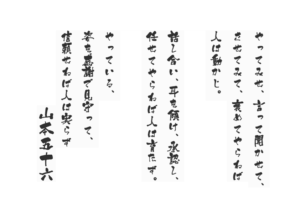 やってみせ、言って聞かせて、
させてみて、褒めてやらねば
人は動かじ。
話し合い、耳を傾け、承認し、
任せてやらねば人は育たず。
やっている、
姿を感謝で見守って、
信頼せねば人は実らず
山本五十六